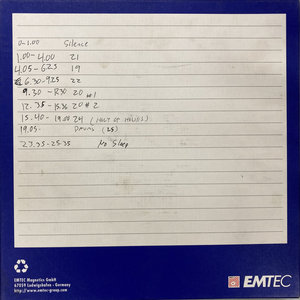 0-1.00 Silence
1.00-4.00 21
4.05-6.25 19
6.30-9.25 22
9.30-12.30 20 #1
12.35-15.36 20 #2
15.40-19.00 24 (HOUT OF HOLIDS)
19.05- DRUMS (25)
23.35-25.35 No Sleep
EMTEC Magnetics GmbH
67059 Ludwigshafen - Germany
http://www.emtec-group.com
EMTEC